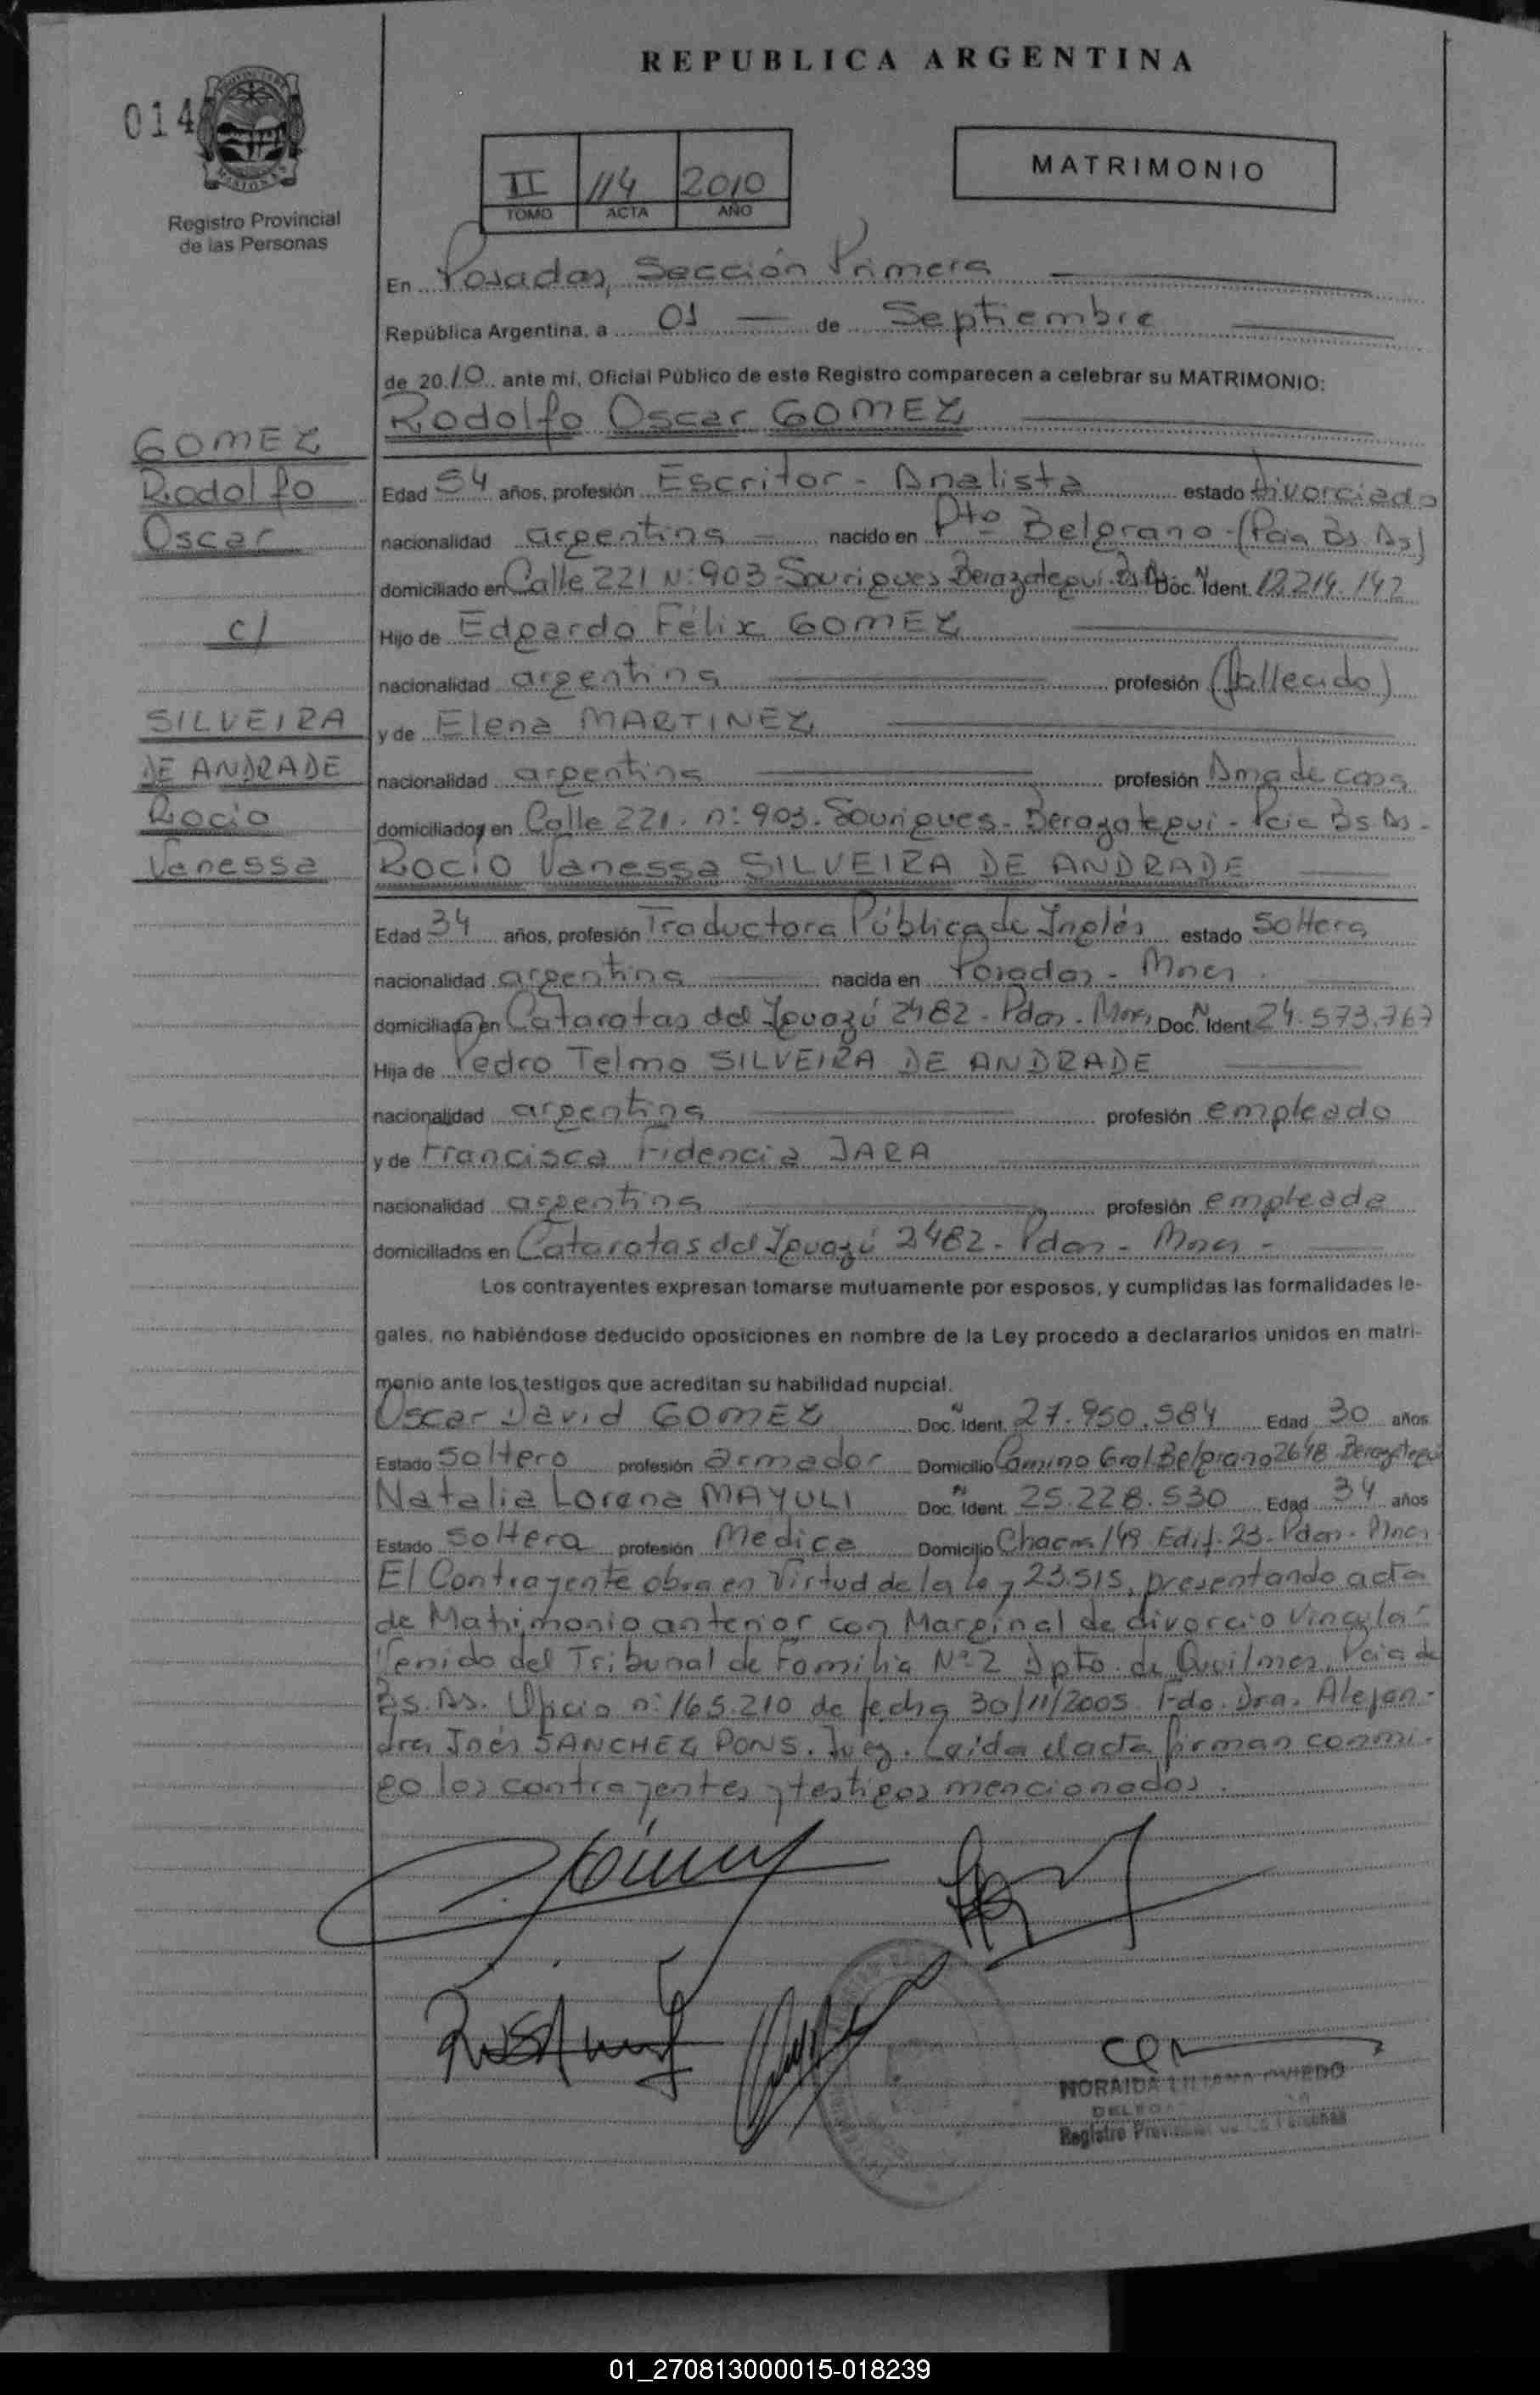 REPUBLICA ARGENTINA
014
MATRIMONIO
II 114 2010
TOMO ACTA AÑO
Registro Provincial
de las Personas
En Posadas, Sección Primera
República Argentina, a 01 de Septiembre
de 2010 ante mí, Oficial Público de este Registro comparecen a celebrar su MATRIMONIO:
Rodolfo Oscar GOMEZ
GOMEZ
Rodolfo
Oscar
c/
SILVEIRA
DE ANDRADE
Rocío
Vanessa
Edad 54 años, profesión Escritor - Analista estado divorciado
nacionalidad argentina nacido en Pto Belgrano - (Pcia Bs As)
domiciliado en Calle 221 N: 903 - Sourigues Berazategui. Bs As Doc. N Ident. 12.214.142
Hijo de Edgardo Félix GOMEZ
nacionalidad argentina profesión (fallecido)
y de Elena MARTINEZ
nacionalidad argentina profesión Ama de casa
domiciliados en Calle 221. n: 903. Sourigues - Berazategui - Pcia Bs As -
ROCIO Vanessa SILVEIRA DE ANDRADE
Edad 34 años, profesión Traductora Pública de Inglés estado soltera
nacionalidad argentina nacida en Posadas - Mnes.
domiciliada en Cataratas del Iguazú 2482 - Pdas - Mnes Doc. N Ident 24.573.767
Hija de Pedro Telmo SILVEIRA DE ANDRADE
nacionalidad argentina profesión empleado
y de Francisca Fidencia JARA
nacionalidad argentina profesión empleada
domiciliados en Cataratas del Iguazú 2482 - Pdas - Mnes -
Los contrayentes expresan tomarse mutuamente por esposos, y cumplidas las formalidades le-
gales, no habiéndose deducido oposiciones en nombre de la Ley procedo a declararlos unidos en matri-
monio ante los testigos que acreditan su habilidad nupcial.
Oscar David GOMEZ Doc. N Ident. 27.950.584 Edad 30 años
Estado soltero profesión armador Domicilio Camino Gral Belgrano 2648 Berazategui
Natalia Lorena MAYULI Doc. N Ident. 25.228.530 Edad 34 años
Estado soltera profesión Medica Domicilio Chacra 149 Edif. 23 - Pdas - Mnes
El Contrayente obra en Virtud de la ley 23.515, presentando acta
de Matrimonio anterior con Marginal de divorcio vincular
venido del Tribunal de Familia Nº 2 Dpto. de Quilmes, Pcia de
Bs. As. Oficio n: 165.210 de fecha 30/11/2005. Fdo. Dra. Alejan-
dra Inés SANCHEZ PONS. Juez. Leída el acta firman conmi-
go los contrayentes y testigos mencionados.
NORAIDA LILIANA OVIEDO
Registro Provincial de las Personas
01_270813000015-018239